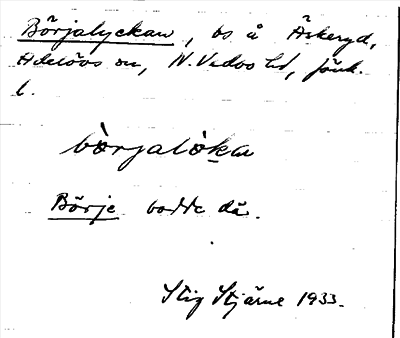 Börjalyckan, bs å Äskeryd,
Adelövs sn, N. Vedbo hd, jönk.
l.
bòrjalòkan
Börje bodde där.
Stig Stjärne 1933.